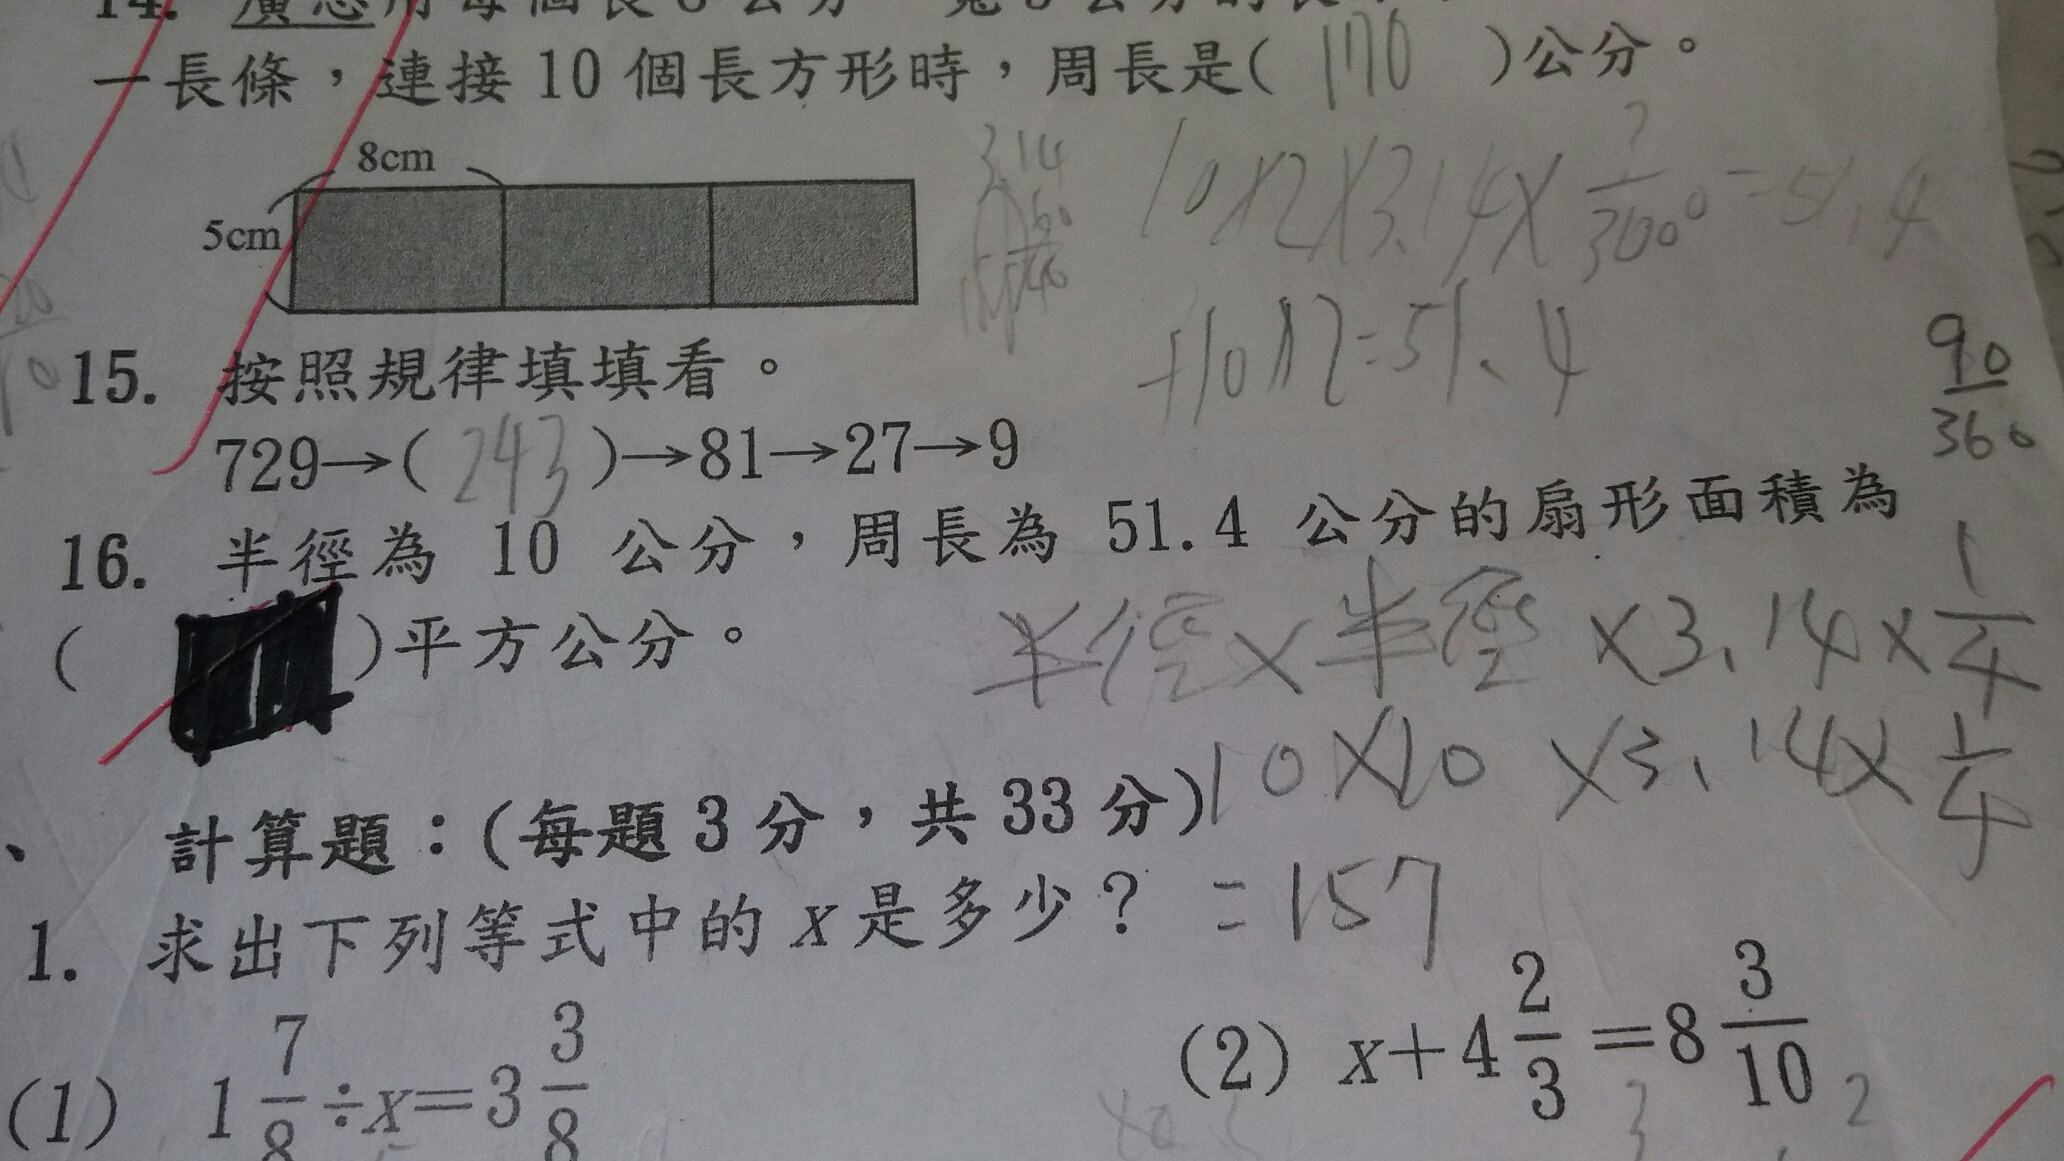 14.
一長條，連接10個長方形時，周長是( 170 )公分。
8cm
5cm
3.14
10×2×3.14×?/360=51.4
+10×2=51.4
15. 按照規律填填看。
729→( 243 )→81→27→9
90/360
16. 半徑為 10 公分，周長為 51.4 公分的扇形面積為
( )平方公分。
半徑×半徑×3.14×1/4
10×10×3.14×1/4
=157
、 計算題：(每題3分，共33分)
1. 求出下列等式中的x是多少？
(1) 1 7/8÷x=3 3/8
(2) x+4 2/3=8 3/10